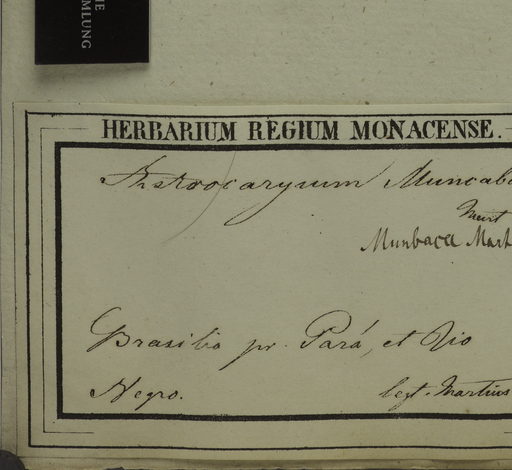 HE
MLUNG
HERBARIUM REGIUM MONACENSE.
Astrocaryum Muncaba
Mart
Munbaca Mart
Brasilia pr. Pará, et Rio
Negro. legt. Martius